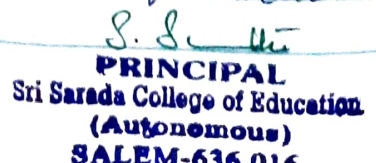 PRINCIPAL
Sri Sarada College of Education
(Autonomous)
SALEM-636 016